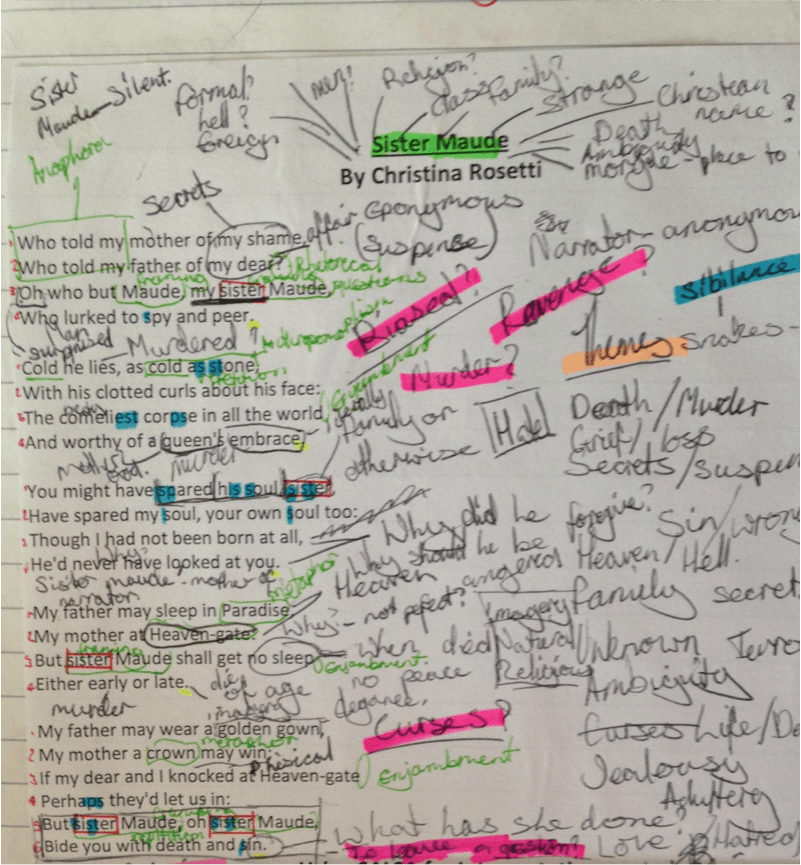 Sister
Maude - Silent.
formal?
hell?
foreign
men?
Religion?
Class
family?
Strange
Christean
name?
Death
Ambiguity
morgue - place to
Sister Maude
By Christina Rosetti
Anaphora
secrets
affair
eponymous
(suspense)
Narrator - anonymou
Who told my mother of my shame,
Who told my father of my dear?
Rhetorical
questions
Oh who but Maude, my sister Maude,
Who lurked to spy and peer.
Biased?
Revenge?
Sibilance
snakes -
surprised
Murdered?
Cold he lies, as cold as stone,
With his clotted curls about his face:
The comeliest corpse in all the world
And worthy of a queen's embrace.
Enjambment
Murder?
Themes
family or
otherwise
Hate
Death/Murder
Grief/loss
Secrets/suspen
murder
You might have spared his soul, sister,
Have spared my soul, your own soul too:
Though I had not been born at all,
He'd never have looked at you.
Why did he forgive?
Why should he be
angered
Sin/wrong
Heaven/Hell.
Why?
Sister maude - mother of
narrator
metaphor
Heaven
My father may sleep in Paradise,
My mother at Heaven-gate:
But sister Maude shall get no sleep
Either early or late.
Why? - not pefect?
Imagery
Natural
Religious
family secret
Unknown
Terro
when died
no peace
Enjambment.
die
of age
imagery
Ambiguity
murder
My father may wear a golden gown,
My mother a crown may win;
If my dear and I knocked at Heaven-gate
Perhaps they'd let us in:
But sister Maude, oh sister Maude,
Bide you with death and sin.
metaphor
Physical
Curses?
Enjambment
repetition
Curses
Life/De
Jealousy
Adultery
What has she done?
Love
Hatred